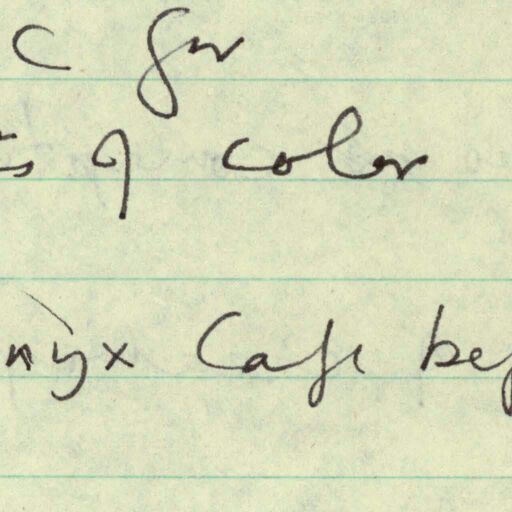 c for
ts of color
nyx Cafe bef